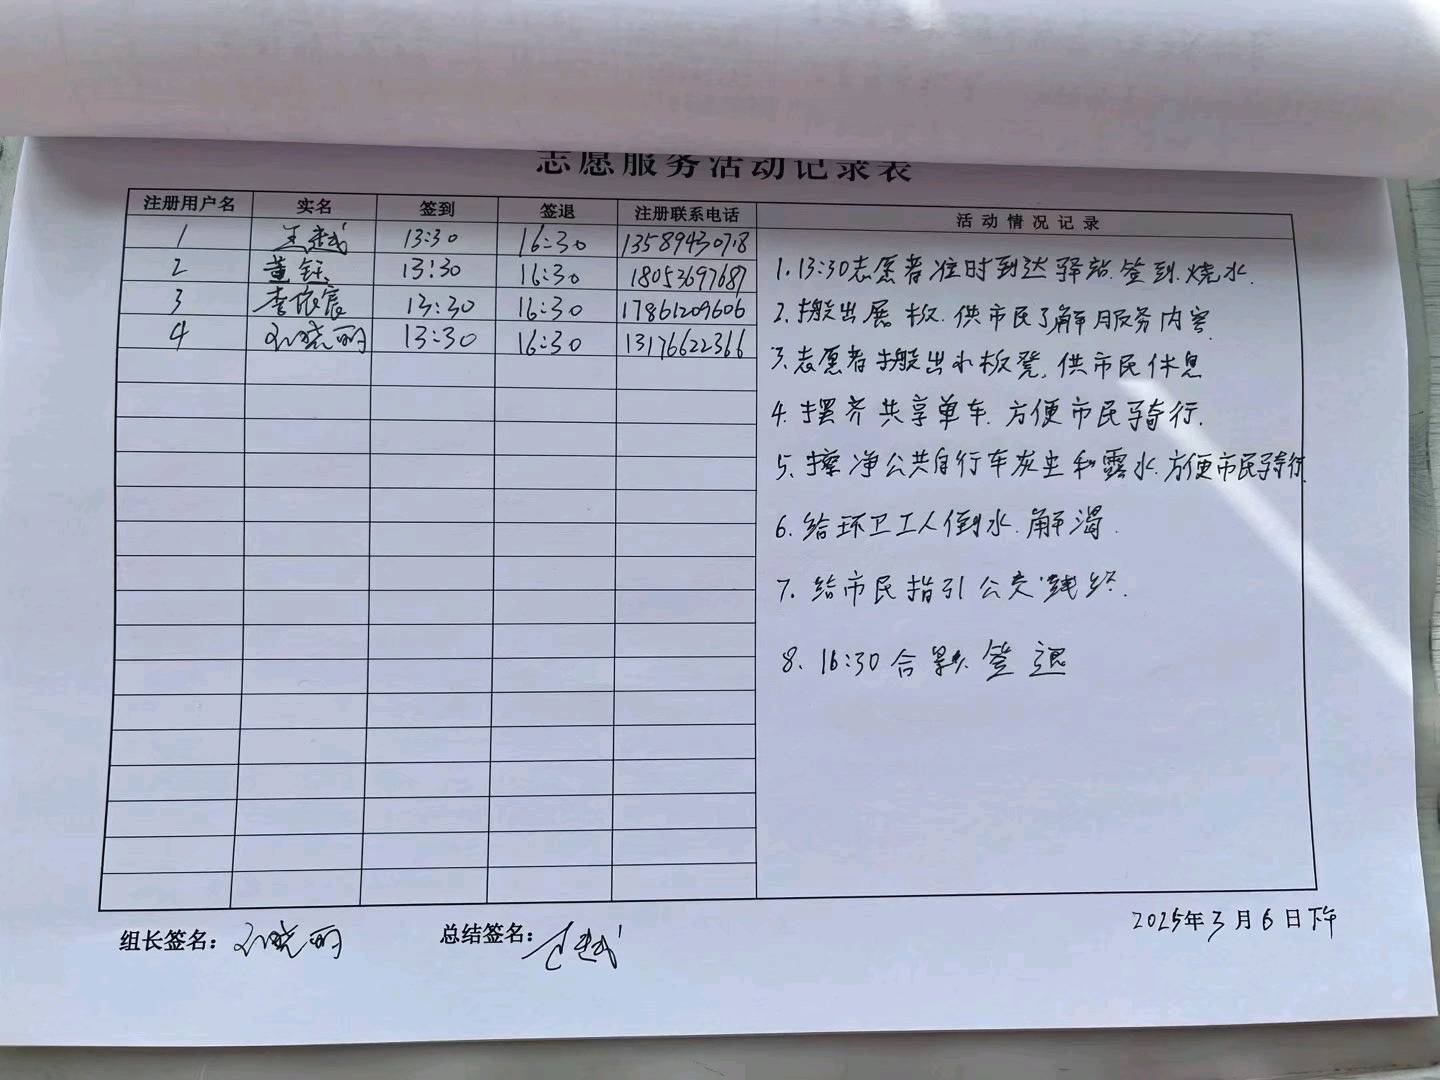 志愿服务活动记录表
注册用户名 实名 签到 签退 注册联系电话 活动情况记录
1 13:30 16:30 13589430718
2 董钰 13:30 16:30 18053697687
3 李依宸 13:30 16:30 17861209606
4 刘晓丽 13:30 16:30 13176622366
1.13:30志愿者准时到达驿站.签到.烧水.
2.搬出展板.供市民了解服务内容.
3.志愿者搬出小板凳.供市民休息
4.摆齐共享单车.方便市民骑行.
5.擦净公共自行车灰尘和露水.方便市民骑行.
6.给环卫工人倒水.解渴.
7.给市民指引公交线路.
8.16:30合影.签退
组长签名：刘晓丽 总结签名：
2025年3月6日下午